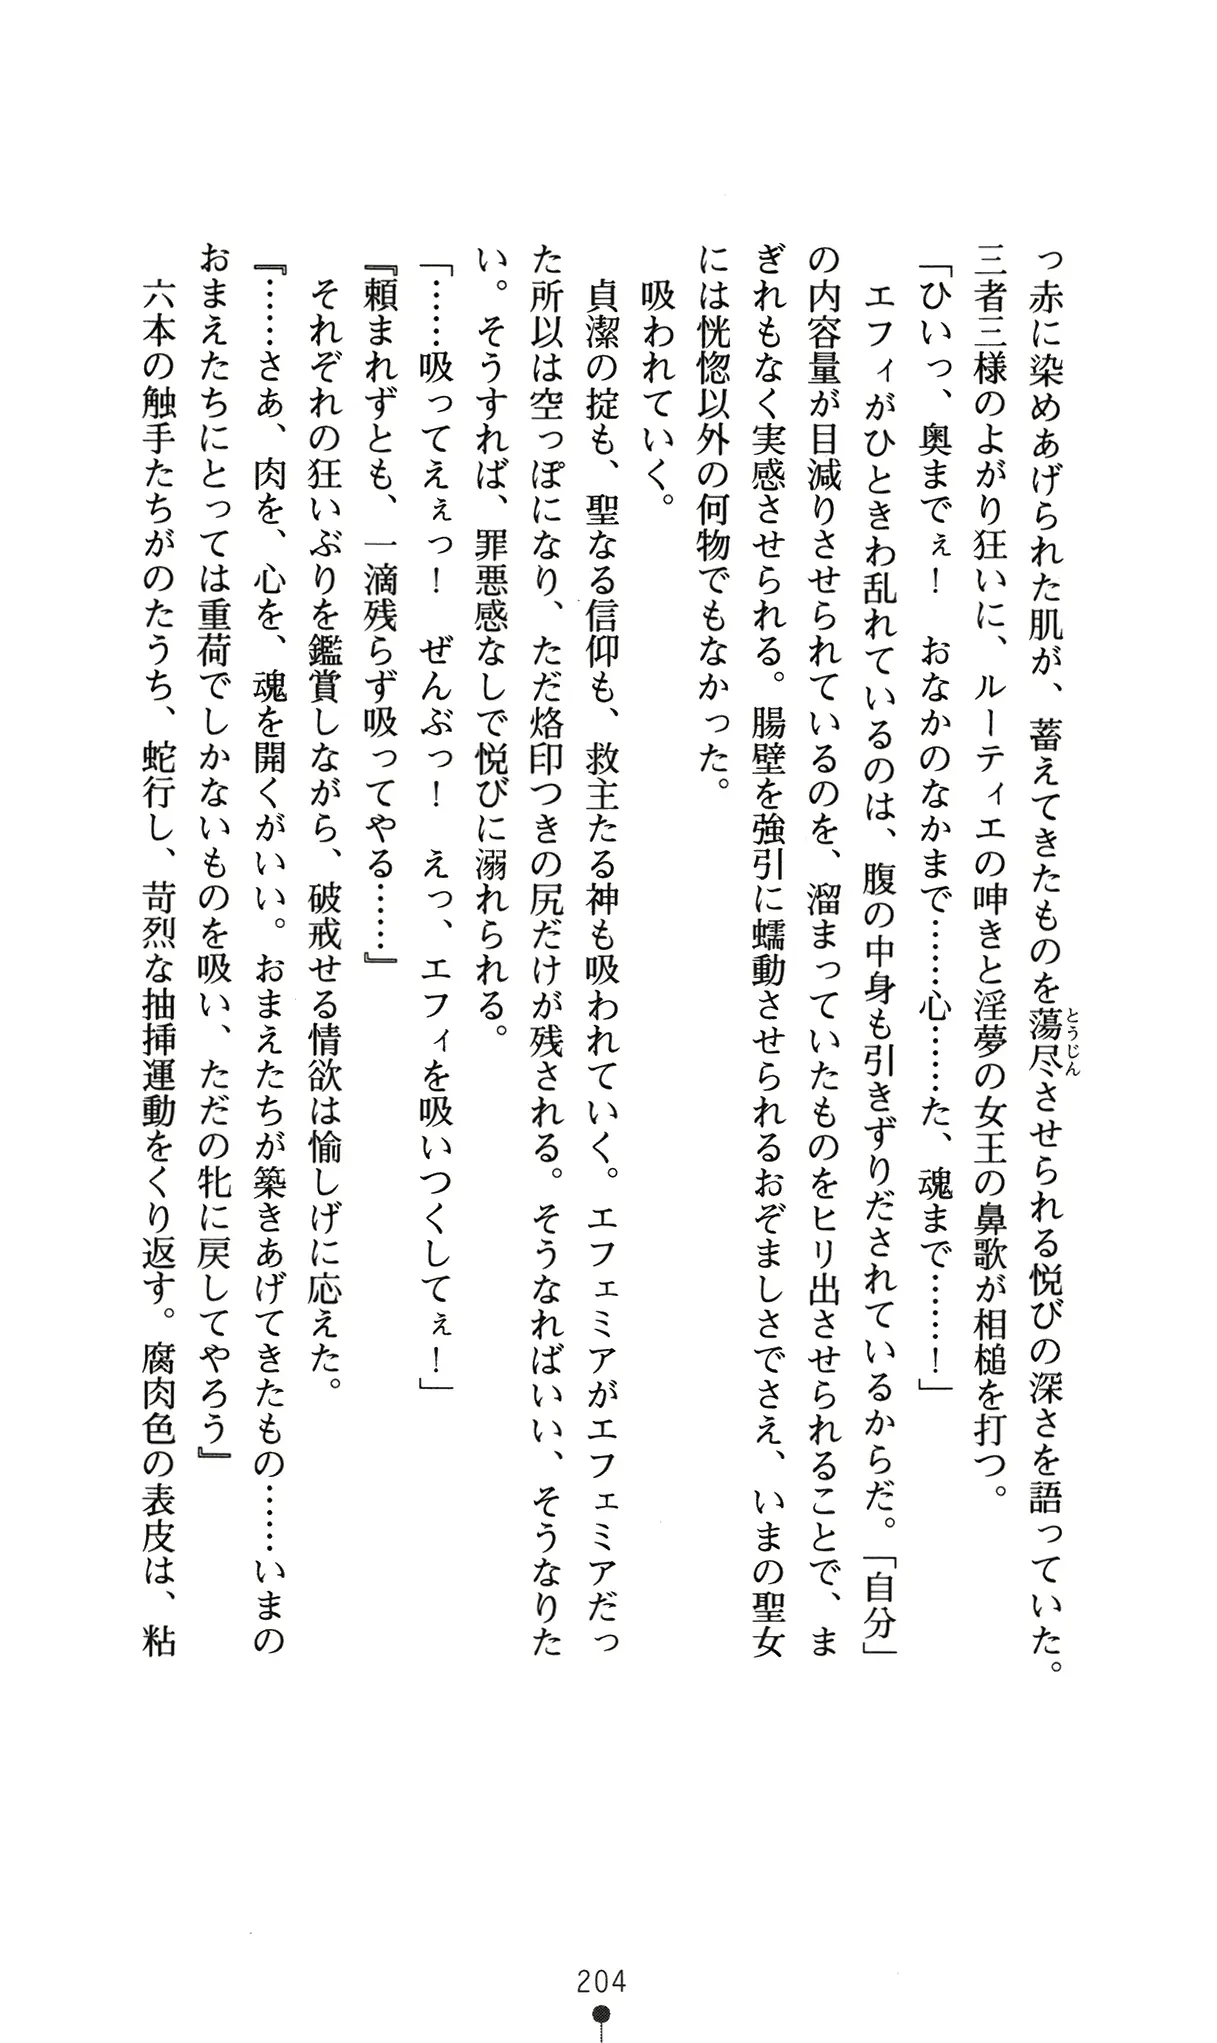 っ赤に染めあげられた肌が、蓄えてきたものを蕩尽させられる悦びの深さを語っていた。
とうじん
三者三様のよがり狂いに、ルーティエの呻きと淫夢の女王の鼻歌が相槌を打つ。
「ひいっ、奥までぇ！　おなかのなかまで……心……た、魂まで……！」
　エフィがひときわ乱れているのは、腹の中身も引きずりだされているからだ。「自分」
の内容量が目減りさせられているのを、溜まっていたものをヒリ出させられることで、ま
ぎれもなく実感させられる。腸壁を強引に蠕動させられるおぞましさでさえ、いまの聖女
には恍惚以外の何物でもなかった。
　吸われていく。
　貞潔の掟も、聖なる信仰も、救主たる神も吸われていく。エフェミアがエフェミアだっ
た所以は空っぽになり、ただ烙印つきの尻だけが残される。そうなればいい、そうなりた
い。そうすれば、罪悪感なしで悦びに溺れられる。
「……吸ってえぇっ！　ぜんぶっ！　えっ、エフィを吸いつくしてぇ！」
『頼まれずとも、一滴残らず吸ってやる……』
　それぞれの狂いぶりを鑑賞しながら、破戒せる情欲は愉しげに応えた。
『……さぁ、肉を、心を、魂を開くがいい。おまえたちが築きあげてきたもの……いまの
おまえたちにとっては重荷でしかないものを吸い、ただの牝に戻してやろう』
　六本の触手たちがのたうち、蛇行し、苛烈な抽挿運動をくり返す。腐肉色の表皮は、粘
204